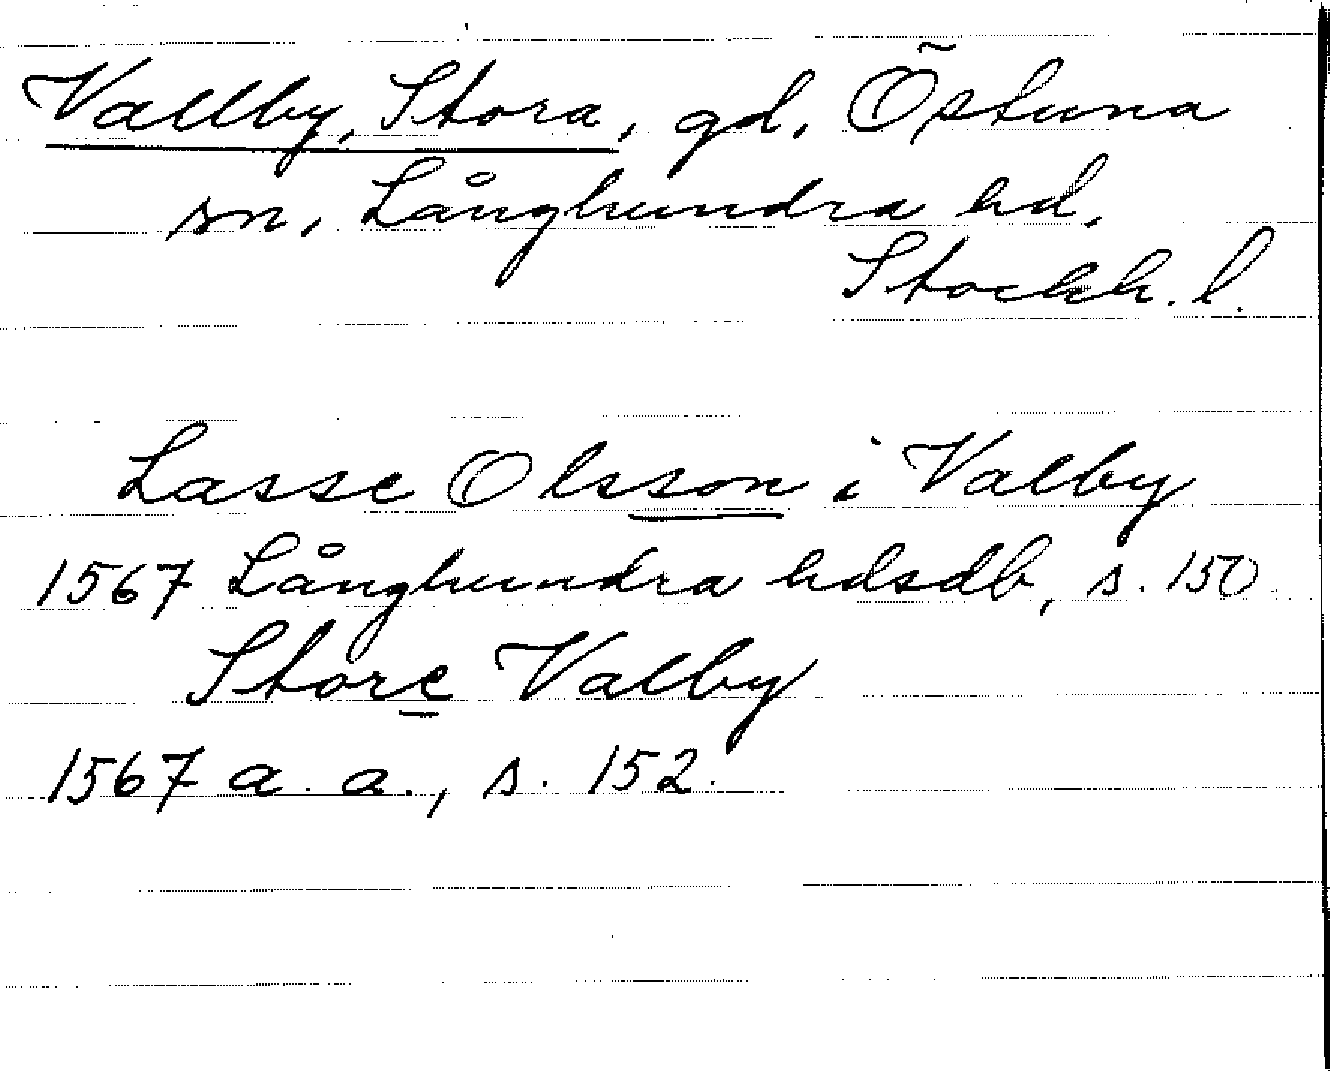 Vallby, Stora, gd, Östuna
sn, Långhundra hd,
Stockh. l.
Lasse Olsson i Valby
1567 Långhundra hdsdb, s. 150
Store Valby
1567 a. a., s. 152.